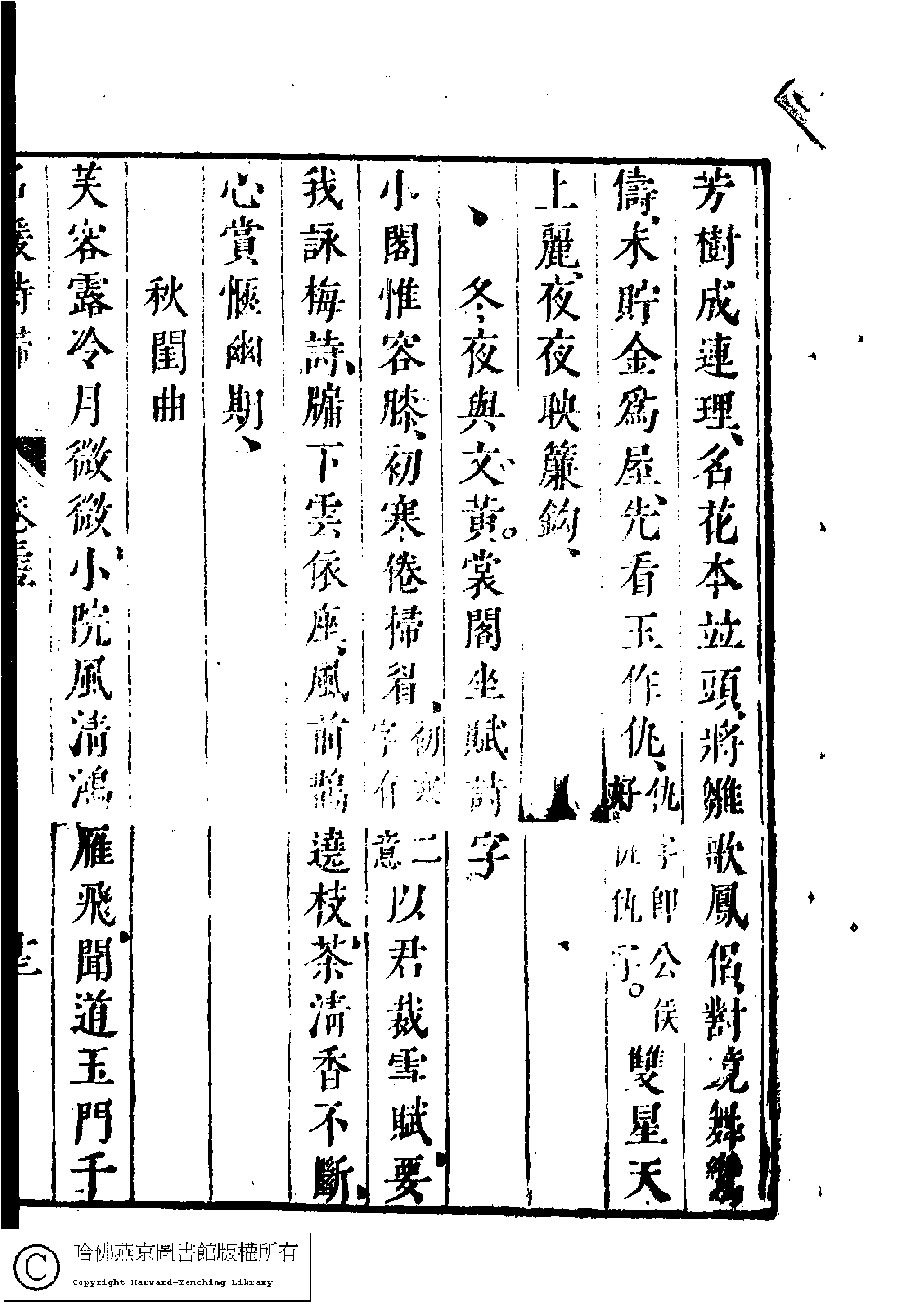 芳樹成連理、名花本竝頭、將雛歌鳳侶、對境舞鸞
儔、未貯金爲屋、先看玉作仇、仇字即公侯好仇仇字。雙星天
上麗、夜夜映簾鈎、
冬夜與文黃裳閣坐賦詩字
小閣惟容膝、初寒倦掃眉、初寒二字有意以君裁雪賦、要
我詠梅詩、牖下雲依座、風前鵲遶枝、茶清香不斷、
心賞愜幽期、
秋閨曲
芙容露冷月微微、小院風清鴻雁飛、聞道玉門千
媛詩歸 卷
哈佛燕京圖書館版權所有
Copyright Harvard-Yenching Library